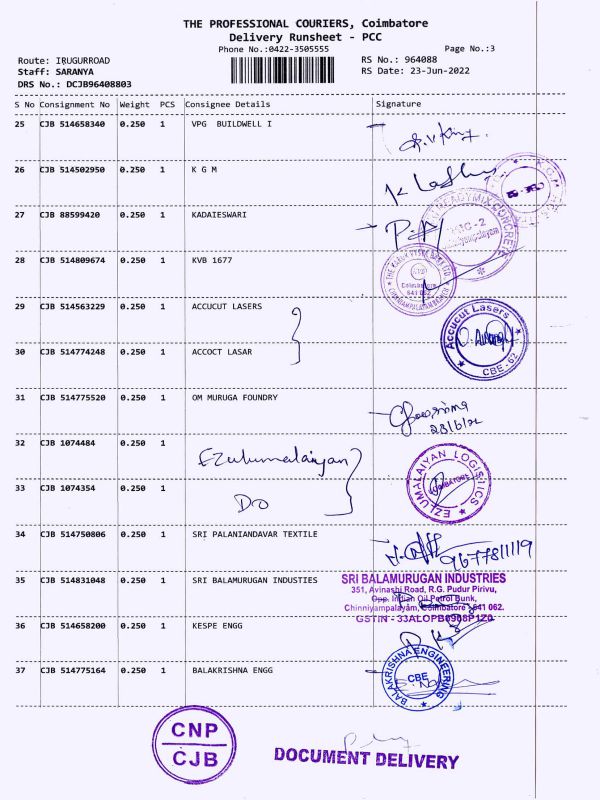 THE PROFESSIONAL COURIERS, Coimbatore
Delivery Runsheet - PCC
Phone No.:0422-3505555
Page No.:3
Route: IRUGURROAD
RS No.: 964088
Staff: SARANYA
RS Date: 23-Jun-2022
DRS No.: DCJB96408803
S No Consignment No Weight PCS Consignee Details Signature
25 CJB 514658340 0.250 1 VPG BUILDWELL I
26 CJB 514502950 0.250 1 K G M
27 CJB 88599420 0.250 1 KADAIESWARI
28 CJB 514809674 0.250 1 KVB 1677
Coimbatore
641 062
29 CJB 514563229 0.250 1 ACCUCUT LASERS
Accucut Lasers
CBE-62
30 CJB 514774248 0.250 1 ACCOCT LASAR
31 CJB 514775520 0.250 1 OM MURUGA FOUNDRY
23/6/22
32 CJB 1074484 0.250 1 Ezulumalaiyan
EZLUMALAIYAN LOGISTICS
COIMBATORE
33 CJB 1074354 0.250 1 DO
34 CJB 514750806 0.250 1 SRI PALANIANDAVAR TEXTILE
9677811119
35 CJB 514831048 0.250 1 SRI BALAMURUGAN INDUSTIES
SRI BALAMURUGAN INDUSTRIES
351, Avinashi Road, R.G. Pudur Pirivu,
Opp. Indian Oil Petrol Bunk,
Chinniyampalayam, Coimbatore - 641 062.
GSTIN - 33ALOPB0908P1Z0
36 CJB 514658200 0.250 1 KESPE ENGG
37 CJB 514775164 0.250 1 BALAKRISHNA ENGG
BALAKRISHNA ENGINEERING
CBE
CNP
CJB
DOCUMENT DELIVERY